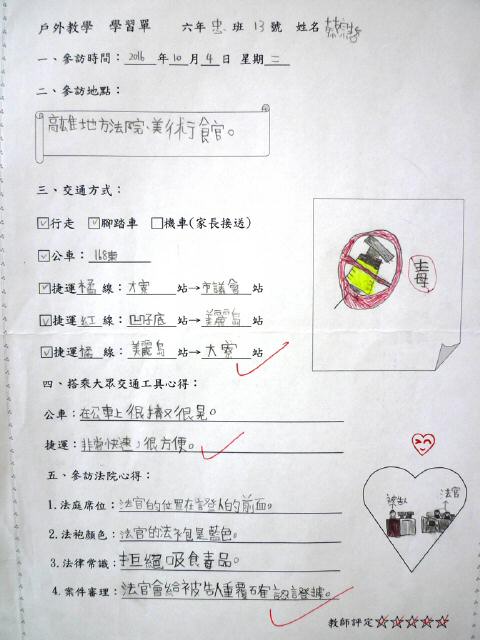 戶外教學 學習單 六年忠班13號 姓名
一、參訪時間：2016年10月4日 星期二
二、參訪地點：
高雄地方法院、美術館。
三、交通方式：
行走 腳踏車 機車(家長接送)
公車：168東
捷運橘線：大寮站→市議會站
捷運紅線：凹仔底站→美麗島站
捷運橘線：美麗島站→大寮站
毒
四、搭乘大眾交通工具心得：
公車：在公車上很擠又很晃。
捷運：非常快速，很方便。
五、參訪法院心得：
1.法庭席位：法官的位置在證人的前面。
被告人 法官
2.法袍顏色：法官的法袍是藍色。
3.法律常識：拒絕吸食毒品。
4.案件審理：法官會給被告人重覆確認證據。
教師評定☆☆☆☆☆